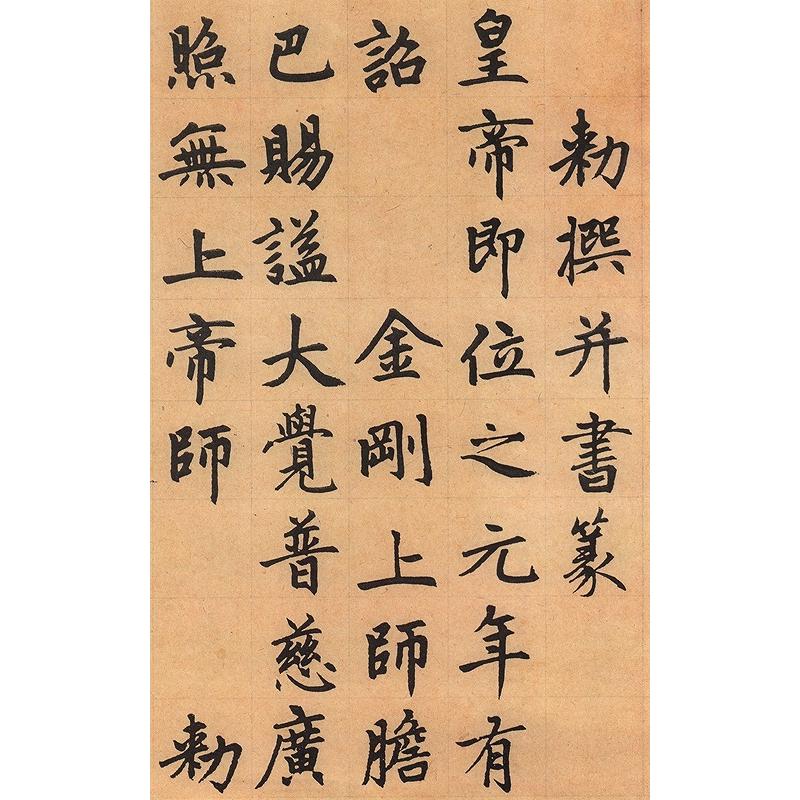 敕撰并書篆
皇帝即位之元年有
詔金剛上師膽
巴賜謚大覺普慈廣
照無上帝師敕